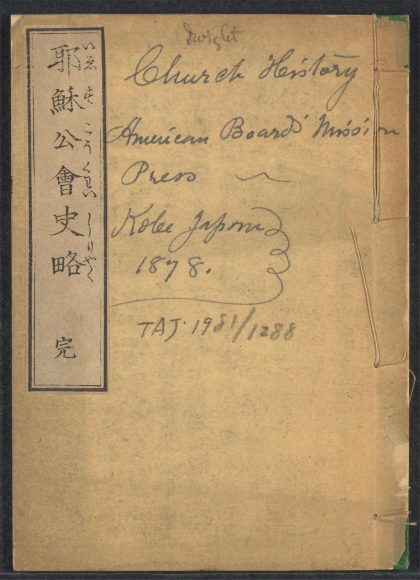 耶穌公會史略 完
いゑすこうくわいしりやく
Dwight
Church History
American Board's Mission
Press
Kobe Japan
1878.
TAJ. 1981/1288